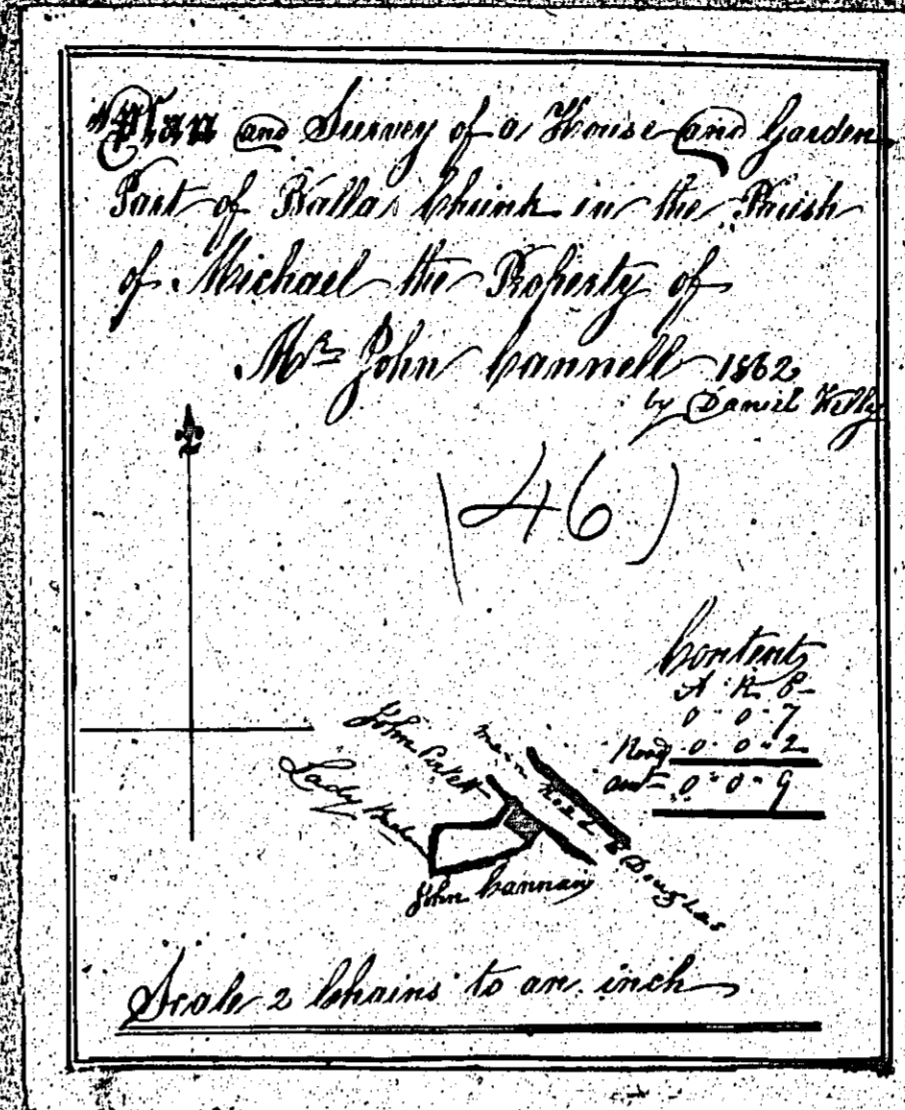 Plan and Survey of a House and Garden
Part of Balla Chrink in the Parish
of Michael the Property of
Mr. John Cannell 1862
by Daniel Kelly
(46)
Contents
A R P
0 0 7
Road 0 0 2
0 0 9
John
Lady
Main Road Douglas
John Cannan
Scale 2 Chains to an inch